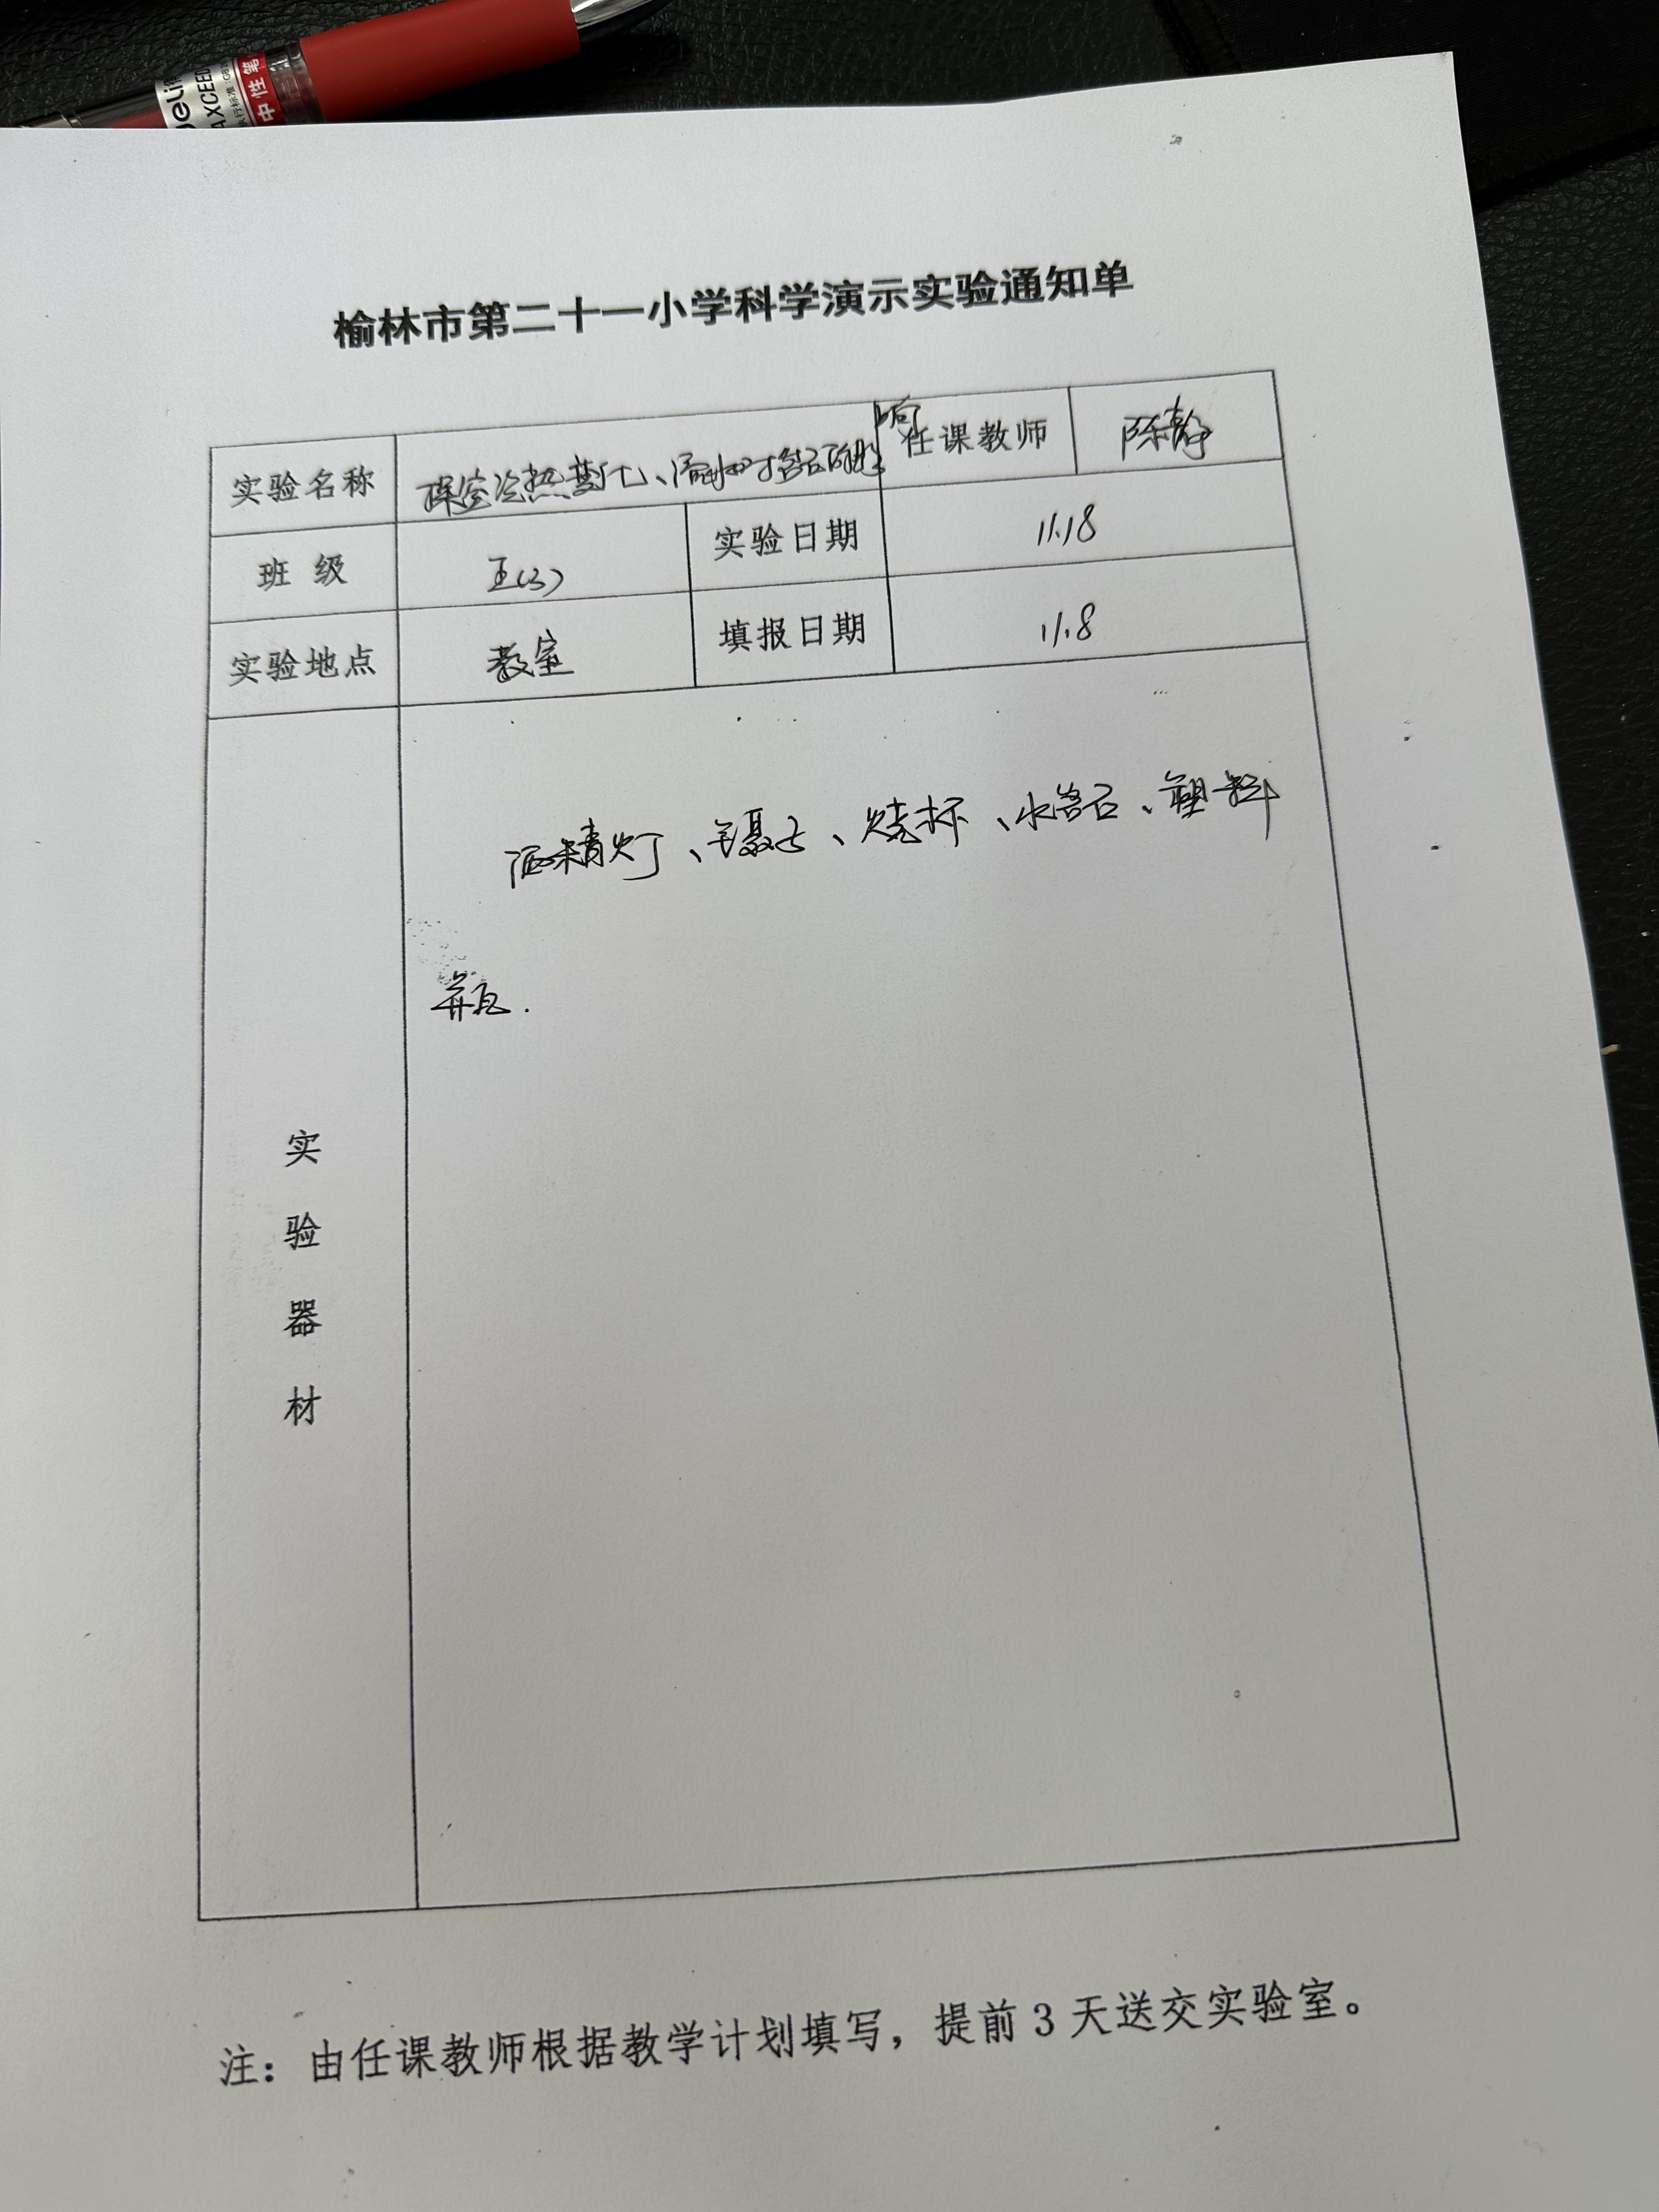 deli
AXCEED
执行标准:GB
中性笔
榆林市第二十一小学科学演示实验通知单
实验名称 探究冷热变化、流水对岩石的影响 任课教师 陈静
班 级 五(3) 实验日期 11.18
实验地点 教室 填报日期 11.8
实验器材
酒精灯、镊子、烧杯、水岩石、塑料
瓶.
注：由任课教师根据教学计划填写，提前 3 天送交实验室。